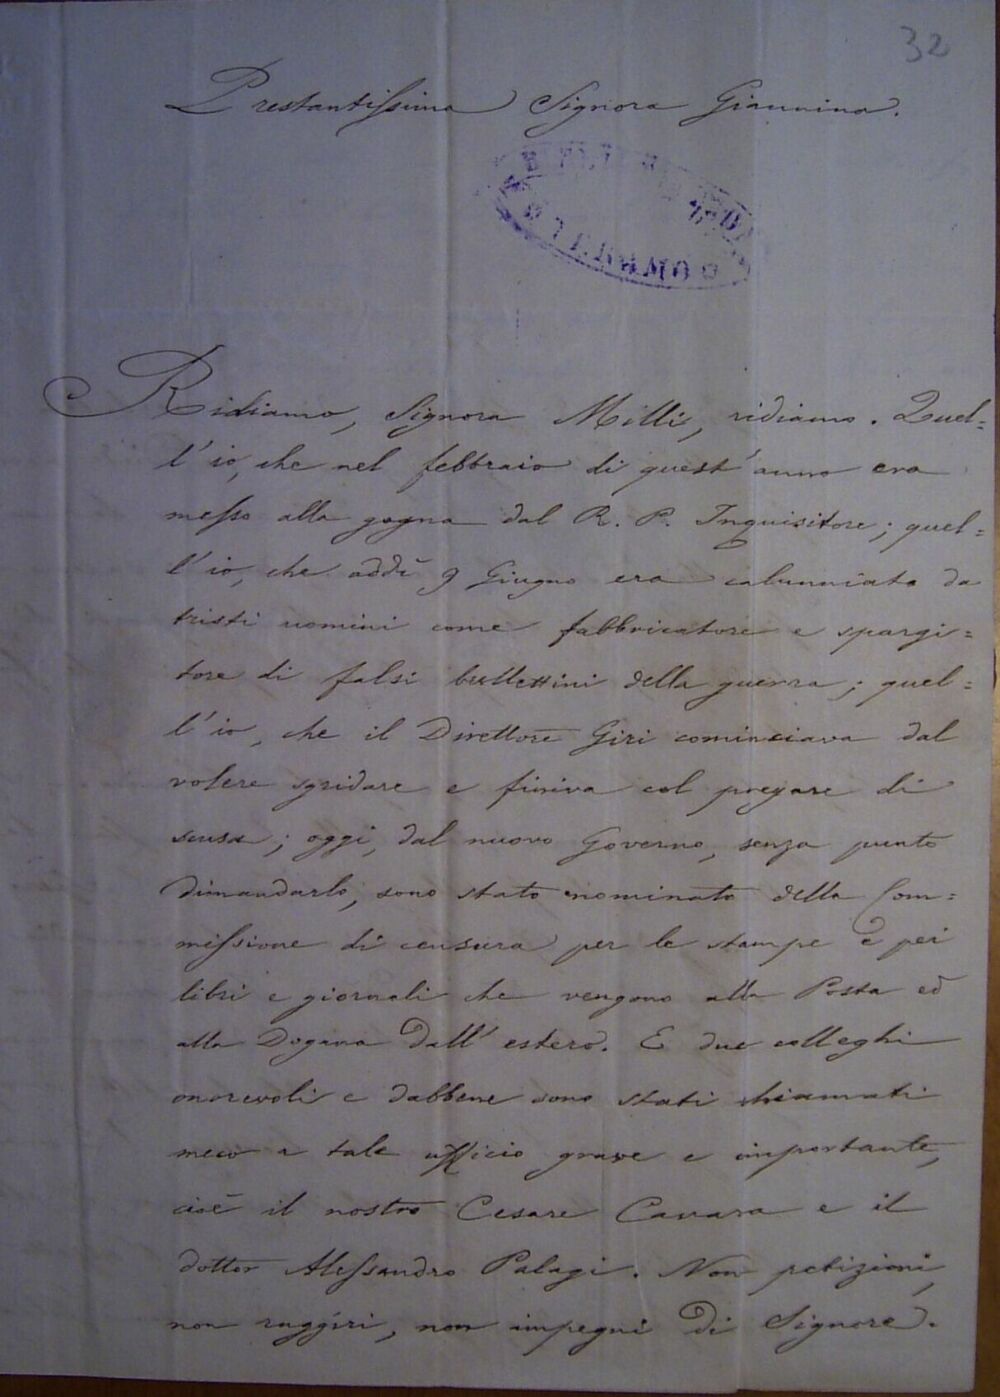 32
Prestantissima Signora Giannina.
Ridiamo, Signora Milli, ridiamo. Quel=
l'io, che nel febbraio di quest'anno era
messo alla gogna dal R. P. Inquisitore; quel=
l'io, che addì 9 Giugno era calunniato da
tristi uomini come fabbricatore e spargi=
tore di falsi bullettini della guerra; quel=
l'io, che il Direttore Giri cominciava dal
volere sgridare e finiva col pregare di
scusa; oggi, dal nuovo Governo, senza punto
dimandarlo, sono stato nominato della Com=
missione di censura per le stampe e pei
libri e giornali che vengono alla Posta ed
alla Dogana dall'estero. E due colleghi
onorevoli e dabbene sono stati chiamati
meco a tale ufficio grave e importante,
cioè il nostro Cesare Cavara e il
dottor Alessandro Palagi. Non petizioni,
non raggiri, non impegni di Signore.